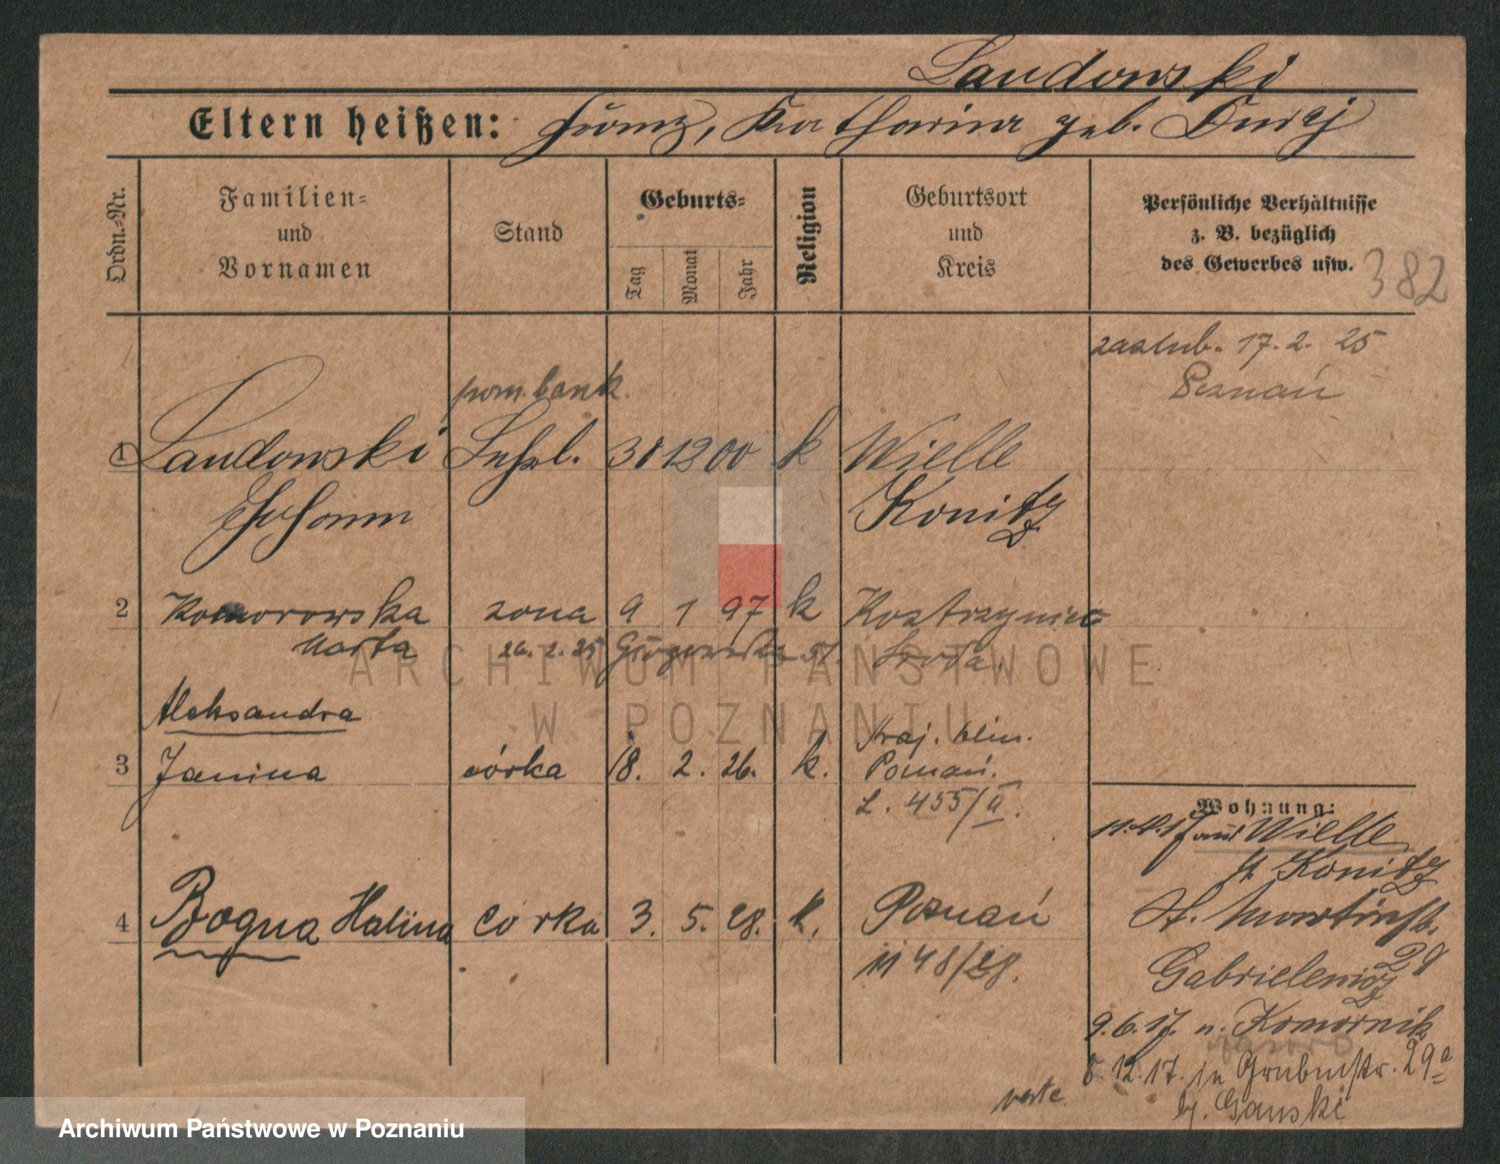 Landowski
Eltern heißen: Franz, Katharina geb.
Ordn.-Nr.
Familien- und Vornamen
Stand
Geburts-
Tag
Monat
Jahr
Religion
Geburtsort und Kreis
Persönliche Verhältnisse
z. B. bezüglich
des Gewerbes usw.
382
zaślub. 17. 2. 25
Poznań
pom. bank.
1 Landowski 12 00 k Wielle
Johann Konitz
2 Komorowska żona 9 1 97 k
Marta 26. 2. 25 Środa.
Aleksandra
3 Janina córka 18. 2. 26. k. Poznań.
L. 455/II.
4 Bogna Halina córka 3. 5. 28. k. Poznań
1148/28.
Wohnung:
11.4.17 aus Wielle
Kr. Konitz
St. Martinstr.
29
Gabrielewicz
9. 6. 17. n. Komornik
5. 12. 17. in Grabenstr. 29a
b. Gauski
verte
ARCHIWUM PAŃSTWOWE
W POZNANIU
Archiwum Państwowe w Poznaniu